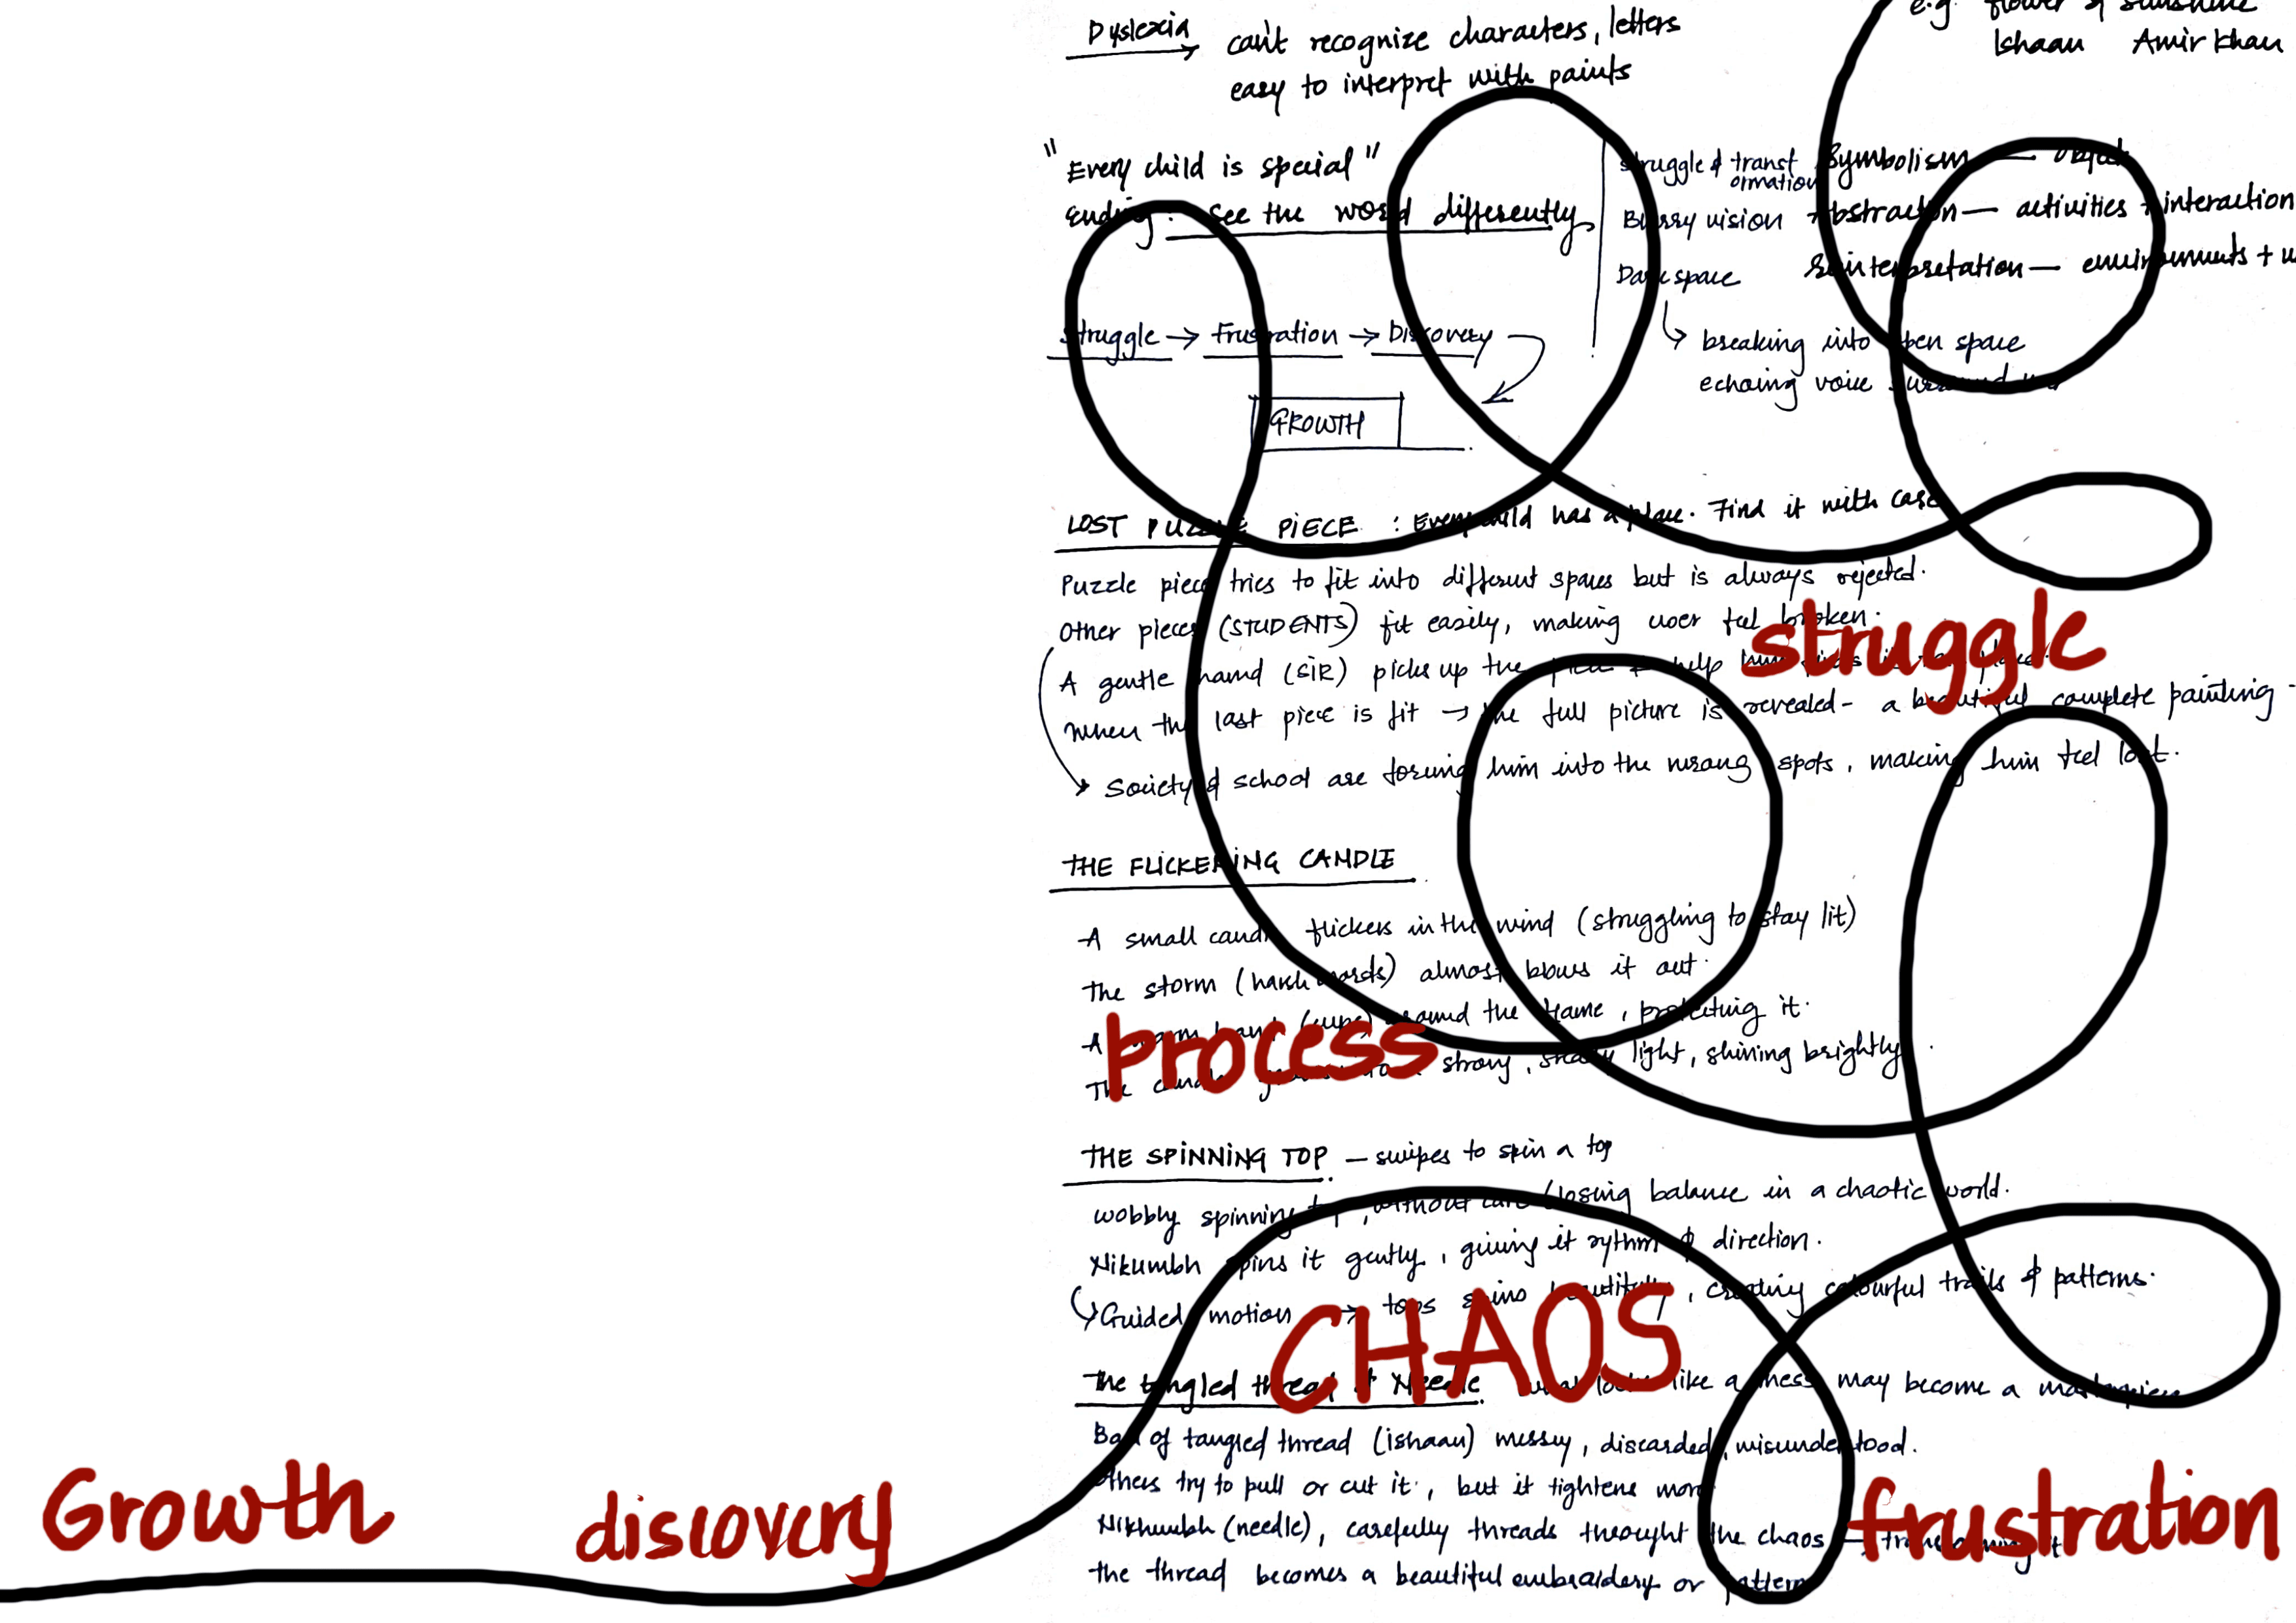 Dyslexia → can't recognize characters, letters
easy to interpret with paints
e.g. flower & sunshine
Ishaan Amir Khan
"Every child is special"
Ending: see the world differently
struggle & transformation
Blurry vision
Dark space
↳ breaking into open space
echoing voice surround
Symbolism — object
Abstraction — activities + interaction
Reinterpretation — environments +
struggle → Frustration → Discovery
GROWTH
LOST PUZZLE PIECE : Every child has a place. Find it with care
Puzzle piece tries to fit into different spaces but is always rejected.
Other pieces (STUDENTS) fit easily, making user feel broken.
struggle
A gentle hand (SIR) picks up the piece & help him
When the last piece is fit → the full picture is revealed - a beautiful complete painting -
→ Society & school are forcing him into the wrong spots, making him feel lost.
THE FLICKERING CANDLE
A small candle flickers in the wind (struggling to stay lit)
The storm (harsh words) almost blows it out.
A warm hand (cups) around the flame, protecting it.
process
The candle grows into a strong, steady light, shining brightly.
THE SPINNING TOP — swipes to spin a top
wobbly spinning top, without care (losing balance in a chaotic world.
Nikumbh spins it gently, giving it rythm & direction.
↳ Guided motion → tops spins beautifully, creating colourful trails & patterns.
CHAOS
The tangled thread & Needle what looks like a mess may become a masterpiece
Ball of tangled thread (ishaan) messy, discarded, misunderstood.
Others try to pull or cut it, but it tightens more
Nikhumbh (needle), carefully threads throught the chaos → transforming it
the thread becomes a beautiful embraidery or pattern
Growth
discovery
frustration